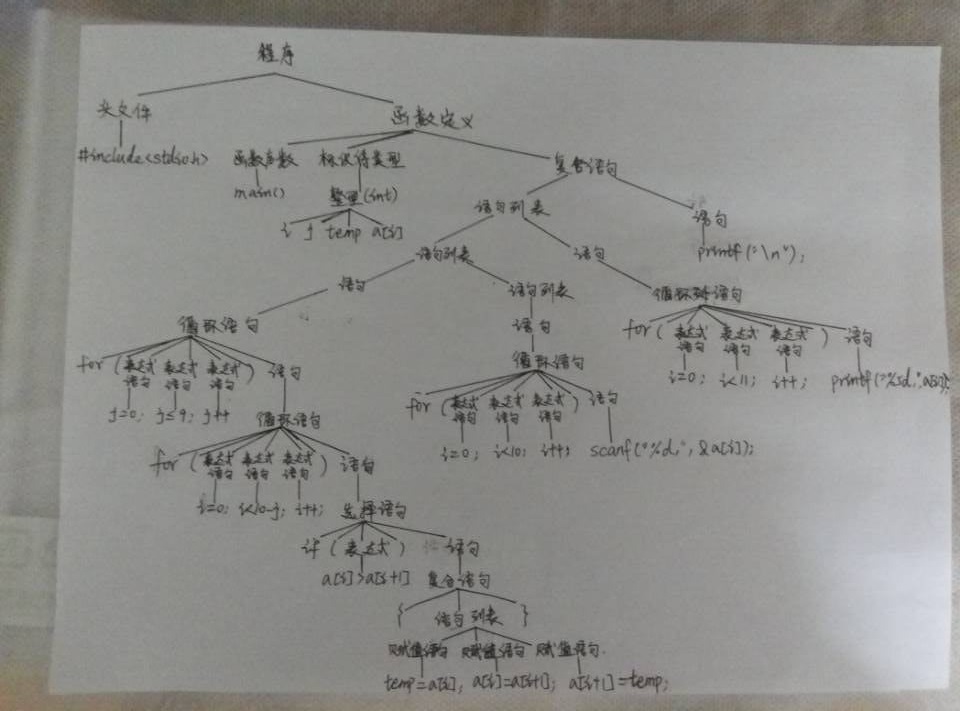 程序
头文件 函数定义
#include<stdio.h> 函数 标识符类型 复合语句
main() 整型(int) 语句列表 语句
i j temp a[i] printf("\n");
语句列表 语句
语句 语句列表 循环 语句
循环语句 语句 for ( 表达式语句 表达式语句 表达式语句 ) 语句
for ( 表达式语句 表达式语句 表达式语句 ) 语句 循环语句 i=0; i<11; i++; printf("%d,",a[i]);
j=0; j≤9; j++ 循环语句 for ( 表达式语句 表达式语句 表达式语句 ) 语句
for ( 表达式语句 表达式语句 表达式语句 ) 语句 i=0; i<10; i++; scanf("%d,",&a[i]);
i=0; i<10-j; i++; 选择语句
if ( 表达式 ) 语句
a[i]>a[i+1] 复合语句
{ 语句列表 }
赋值语句 赋值语句 赋值语句.
temp=a[i]; a[i]=a[i+1]; a[i+1]=temp;